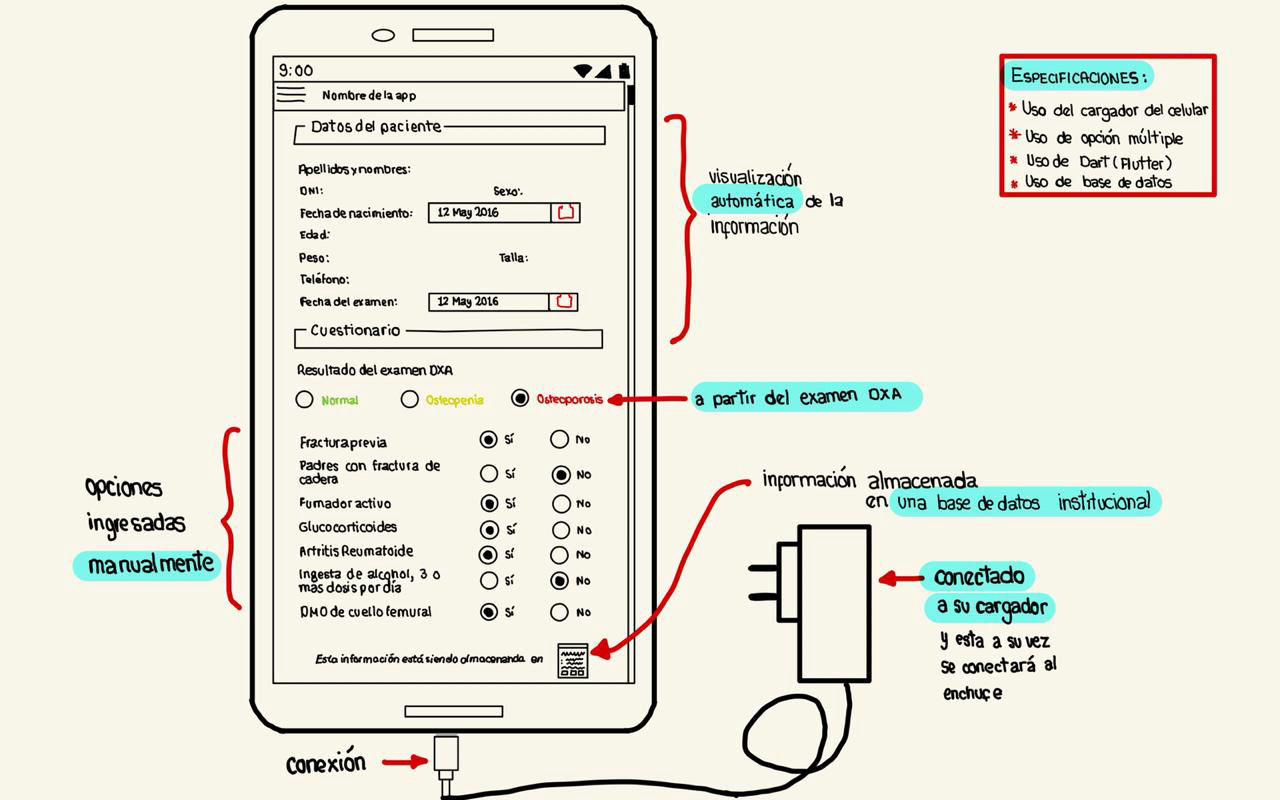 9:00
Nombre de la app
Datos del paciente
Apellidos y nombres:
DNI: Sexo:
Fecha de nacimiento: 12 May 2016
Edad:
Peso: Talla:
Teléfono:
Fecha del examen: 12 May 2016
Cuestionario
Resultado del examen DXA
Normal Osteopenia Osteoporosis
Fractura previa Sí No
Padres con fractura de
cadera Sí No
Fumador activo Sí No
Glucocorticoides Sí No
Artritis Reumatoide Sí No
Ingesta de alcohol, 3 o
más dosis por día Sí No
DMO de cuello femural Sí No
Esta información está siendo almacenanda en
opciones
ingresadas
manualmente
visualización
automática de la
información
a partir del examen DXA
información almacenada
en una base de datos institucional
conectado
a su cargador
y esta a su vez
se conectará al
enchuçe
conexión
ESPECIFICACIONES:
* Uso del cargador del celular
* Uso de opción múltiple
* Uso de Dart (Flutter)
* Uso de base de datos